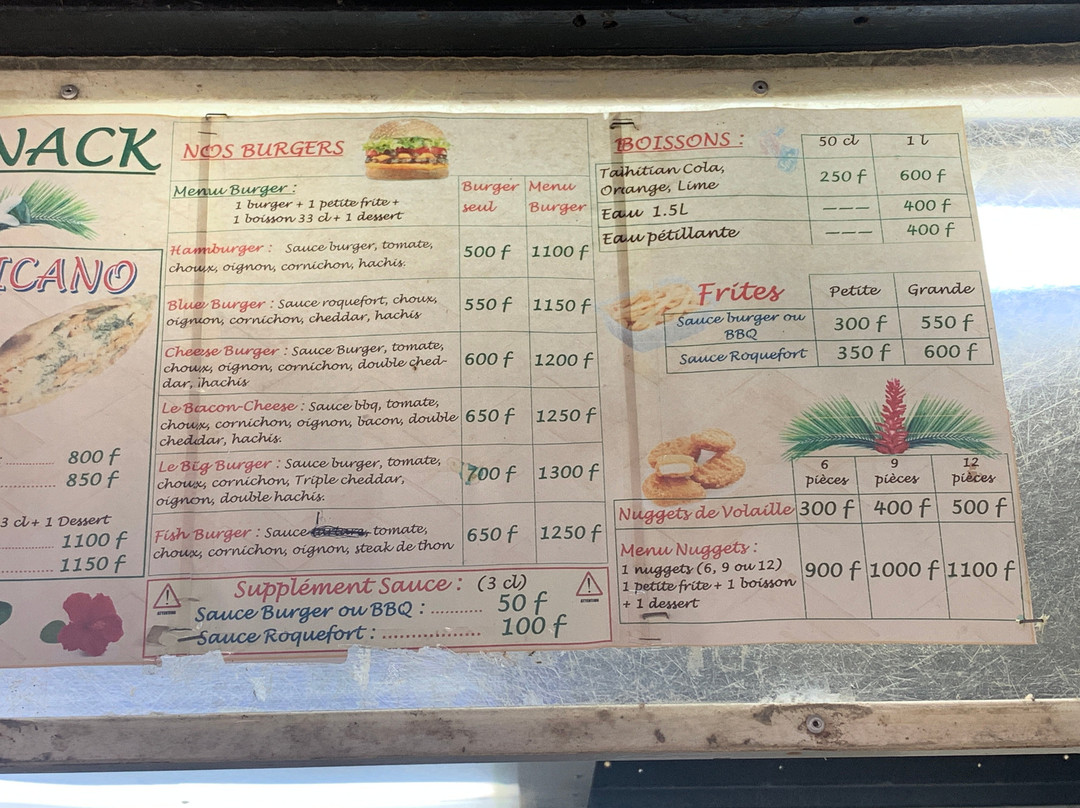 NACK
ICANO
800 f
850 f
3 cl + 1 Dessert
1100 f
1150 f
NOS BURGERS
Menu Burger :
1 burger + 1 petite frite +
1 boisson 33 cl + 1 dessert
Burger seul
Menu Burger
Hamburger : Sauce burger, tomate,
choux, oignon, cornichon, hachis.
500 f 1100 f
Blue Burger : Sauce roquefort, choux,
oignon, cornichon, cheddar, hachis
550 f 1150 f
Cheese Burger : Sauce Burger, tomate,
choux, oignon, cornichon, double ched-
dar, hachis
600 f 1200 f
Le Bacon-Cheese : Sauce bbq, tomate,
choux, cornichon, oignon, bacon, double
cheddar, hachis.
650 f 1250 f
Le Big Burger : Sauce burger, tomate,
choux, cornichon, Triple cheddar,
oignon, double hachis.
700 f 1300 f
Fish Burger : Sauce tomate,
choux, cornichon, oignon, steak de thon
650 f 1250 f
Supplément Sauce : (3 cl)
Sauce Burger ou BBQ : ........... 50 f
Sauce Roquefort : ..................... 100 f
ATTENTION
ATTENTION
BOISSONS : 50 cl 1 l
Taihitian Cola,
Orange, Lime
250 f 600 f
Eau 1.5L --- 400 f
Eau pétillante --- 400 f
Frites Petite Grande
Sauce burger ou
BBQ
300 f 550 f
Sauce Roquefort 350 f 600 f
6 pièces
9 pièces
12 pièces
Nuggets de Volaille 300 f 400 f 500 f
Menu Nuggets :
1 nuggets (6, 9 ou 12)
1 petite frite + 1 boisson
+ 1 dessert
900 f 1000 f 1100 f